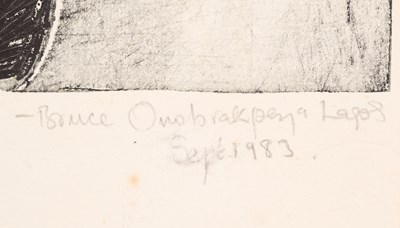 - Bruce Onobrakpeya Lagos
Sept. 1983.